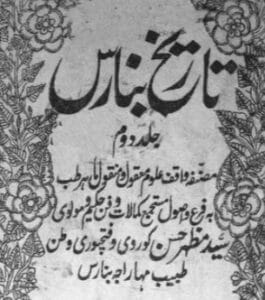 تاریخ بنارس
جلد دوم
مصنفہ واقف علوم معقول و منقول ماہر طب
بہ فرع و اصول مستجمع کمالات و فن حکیم و مولوی
سید مظہر حسن کوروی و فتحپوری وطن
طبیب مہاراجہ بنارس